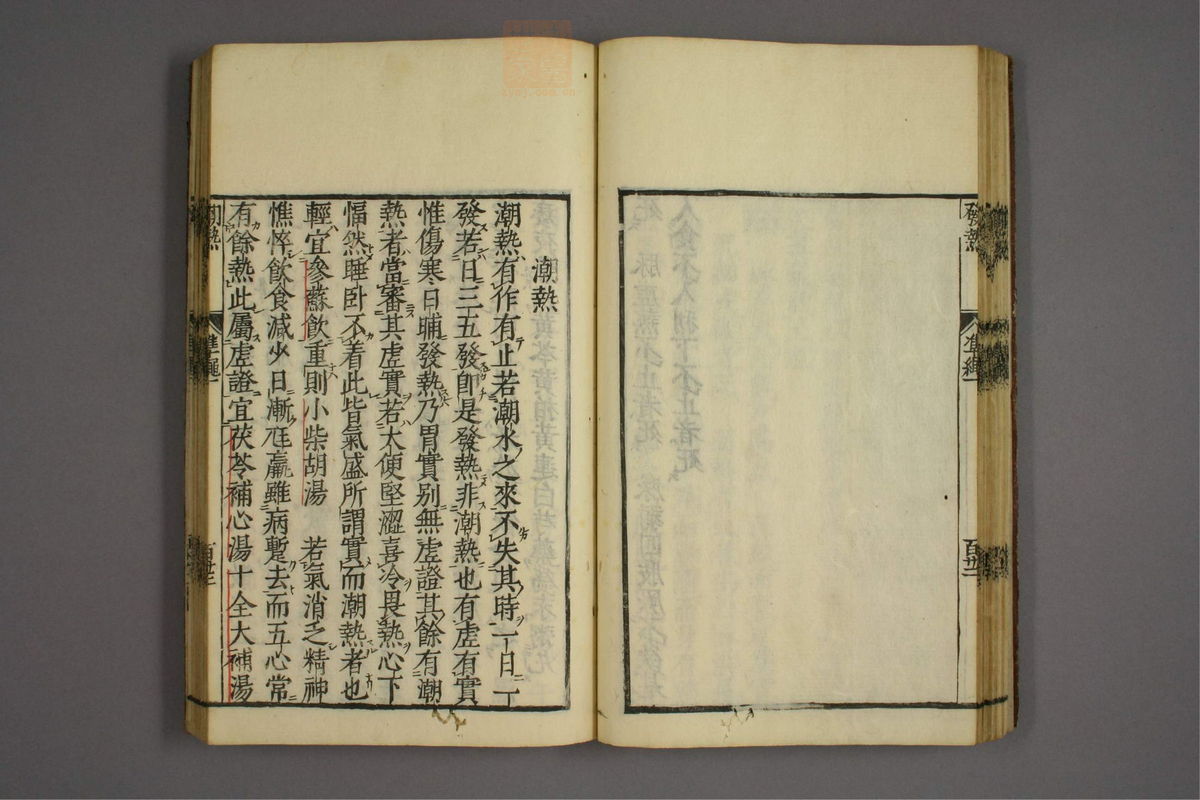 發熱
準繩一
百卅二
潮熱
潮熱有作有止若潮水之來不失其時一日一
發若日三五發卽是發熱非潮熱也有虛有實
惟傷寒日晡發熱乃胃實別無虛證其餘有潮
熱者當審其虛實若大便堅澀喜冷畏熱心下
愊然睡卧不着此皆氣盛所謂實而潮熱者也
輕宜參蘇飲重則小柴胡湯　若氣消乏精神
憔悴飲食減少日漸尫羸雖病暫去而五心常
有餘熱此屬虛證宜茯苓補心湯十全大補湯